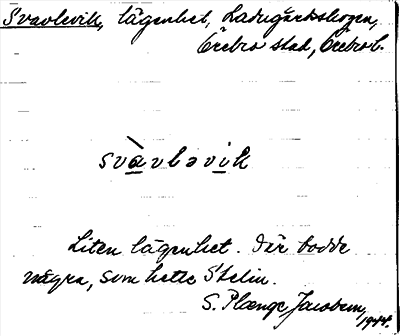 Svavlevik, lägenhet, Ladugårdsskogen,
Örebro stad, Örebro l.
svàvləvik
Liten lägenhet. Där bodde
några, som hette Stelin.
S. Plænge Jacobson,
1944.